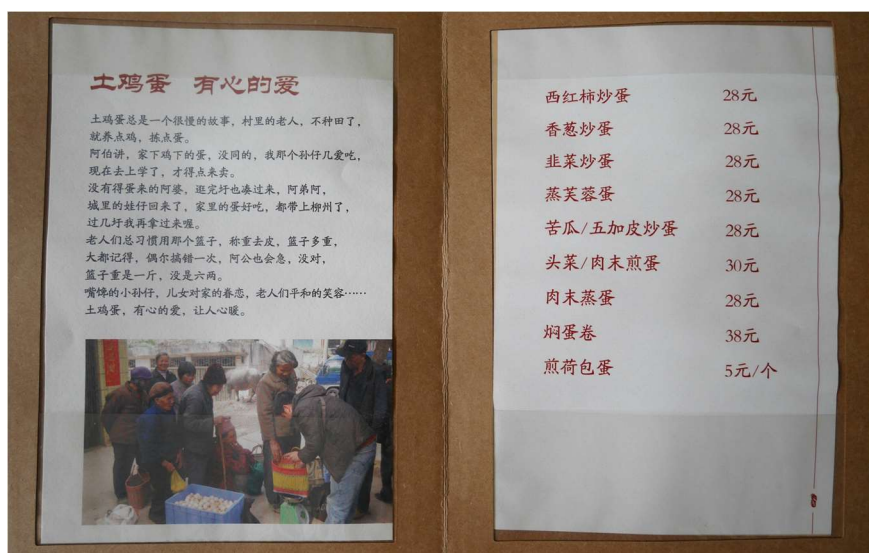 土鸡蛋 有心的爱
土鸡蛋总是一个很慢的故事，村里的老人，不种田了，
就养点鸡，拣点蛋。
阿伯讲，家下鸡下的蛋，没同的，我那个孙仔几爱吃，
现在去上学了，才得点来卖。
没有得蛋来的阿婆，逛完圩也凑过来，阿弟阿，
城里的娃仔回来了，家里的蛋好吃，都带上柳州了，
过几圩我再拿过来喔。
老人们总习惯用那个篮子，称重去皮，篮子多重，
大都记得，偶尔搞错一次，阿公也会急，没对，
篮子重是一斤，没是六两。
嘴馋的小孙仔，儿女对家的眷恋，老人们平和的笑容……
土鸡蛋，有心的爱，让人心暖。
西红柿炒蛋 28元
香葱炒蛋 28元
韭菜炒蛋 28元
蒸芙蓉蛋 28元
苦瓜/五加皮炒蛋 28元
头菜/肉末煎蛋 30元
肉末蒸蛋 28元
焖蛋卷 38元
煎荷包蛋 5元/个